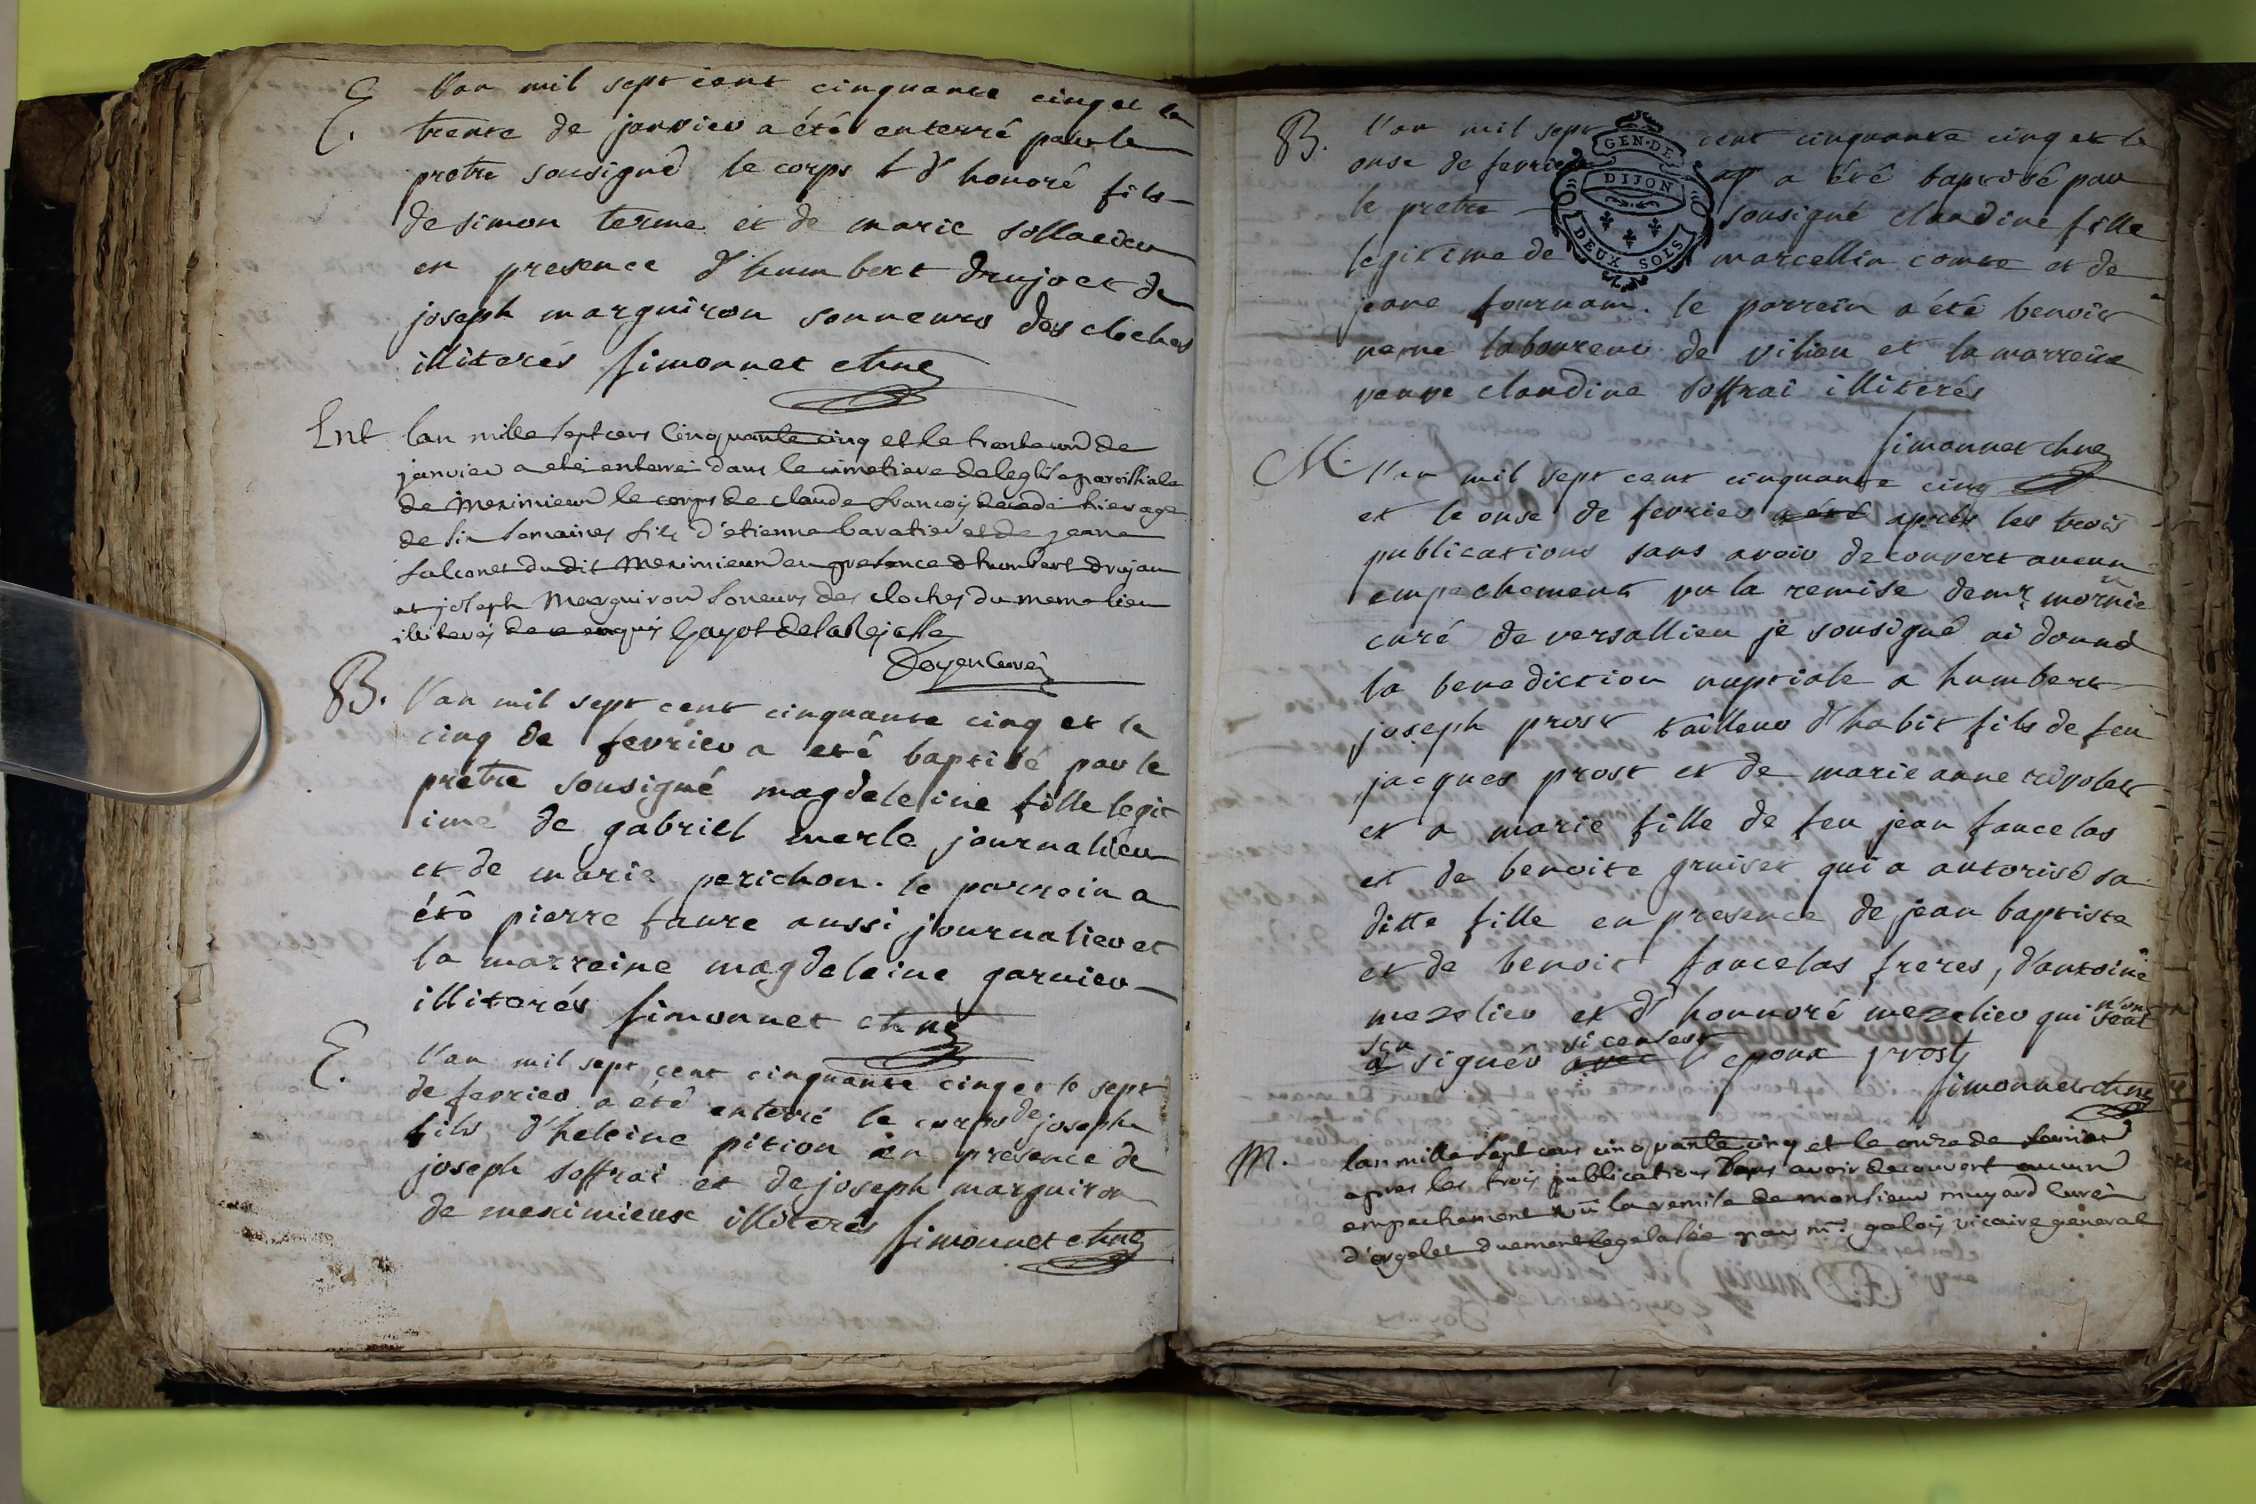 E. l'an mil sept cent cinquante cinq et le
trente de janvier a été enterré par le
pretre sousigné le corps d'honoré fils
de simon terme et de marie
en presence d'humbert drujo et de
joseph marguiron sonneurs des cloches
illiterés simonnet chne
Ent lan mille sept cens cinquante cinq et le trente un de
janvier a eté enterré dans le cimetiere de leglise paroissiale
de Meximieux le corps de claude françois decedé hier agé
de six semaines fils d'etienne baratier et de jeanne
falconet dudit Meximieux en presence d'humbert drujau
et joseph Marguiron soneurs des cloches du meme lieu
illiterés de ce enquis Gayot de la Rejasse
Doyen Curé
B. l'an mil sept cent cinquante cinq et le
cinq de fevrier a eté baptisé par le
prêtre sousigné magdeleine fille legit
ime de gabriel merle journalier
et de marie perichon. le parrein a
été pierre faure aussi journalier et
la marreine magdeleine garnier
illiterés simonnet chne
E. l'an mil sept cent cinquante cinq et le sept
de fevrier a été enterré le corps de joseph
fils d'heleine pition en presence de
joseph soffrai et de joseph marguiron
de meximieux illiterés simonnet chne
B. l'an mil sept cent cinquante cinq et le
onse de fevrier a été baptisé par
le pretre sousigné claudine fille
legitime de marcellin comte et de
jeane fournam. le parrein a été benoit
neme laboureur de vilieu et la marreine
claudine soffrai illiterés
simonnet chne
GEN. DE
DIJON
DEUX SOLS
M. l'an mil sept cent cinquante cinq
et le onse de fevrier a été après les trois
publications sans avoir decouvert aucun
empechement vu la remise de mr. mornie
curé de versallieu je sousigné ai donné
la benediction nuptiale a humbert
joseph prost tailleur d'habit fils de feu
jacques prost et de marie anne
et a marie fille de feu jean fancelas
et de benoite gruiset qui a autorisé sa
ditte fille en presence de jean baptiste
et de benoit fancelas freres, d'antoine
mezelier et d'honnoré mezelier qui n'ont
sçu signer avec si ce n'est l'epoux prost
simonnet chne
M. lan mille sept cens cinquante cinq et le onze de fevrier
apres les trois publications sans avoir decouvert aucun
empechement vû la remise de monsieur muyard curé
d'orgelet duement legalisée par mr. galois vicaire general